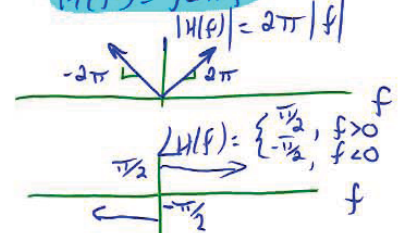 |H(f)| = 2π|f|
-2π 2π
f
∠H(f) = { π/2, f>0
-π/2, f<0
π/2
f
-π/2